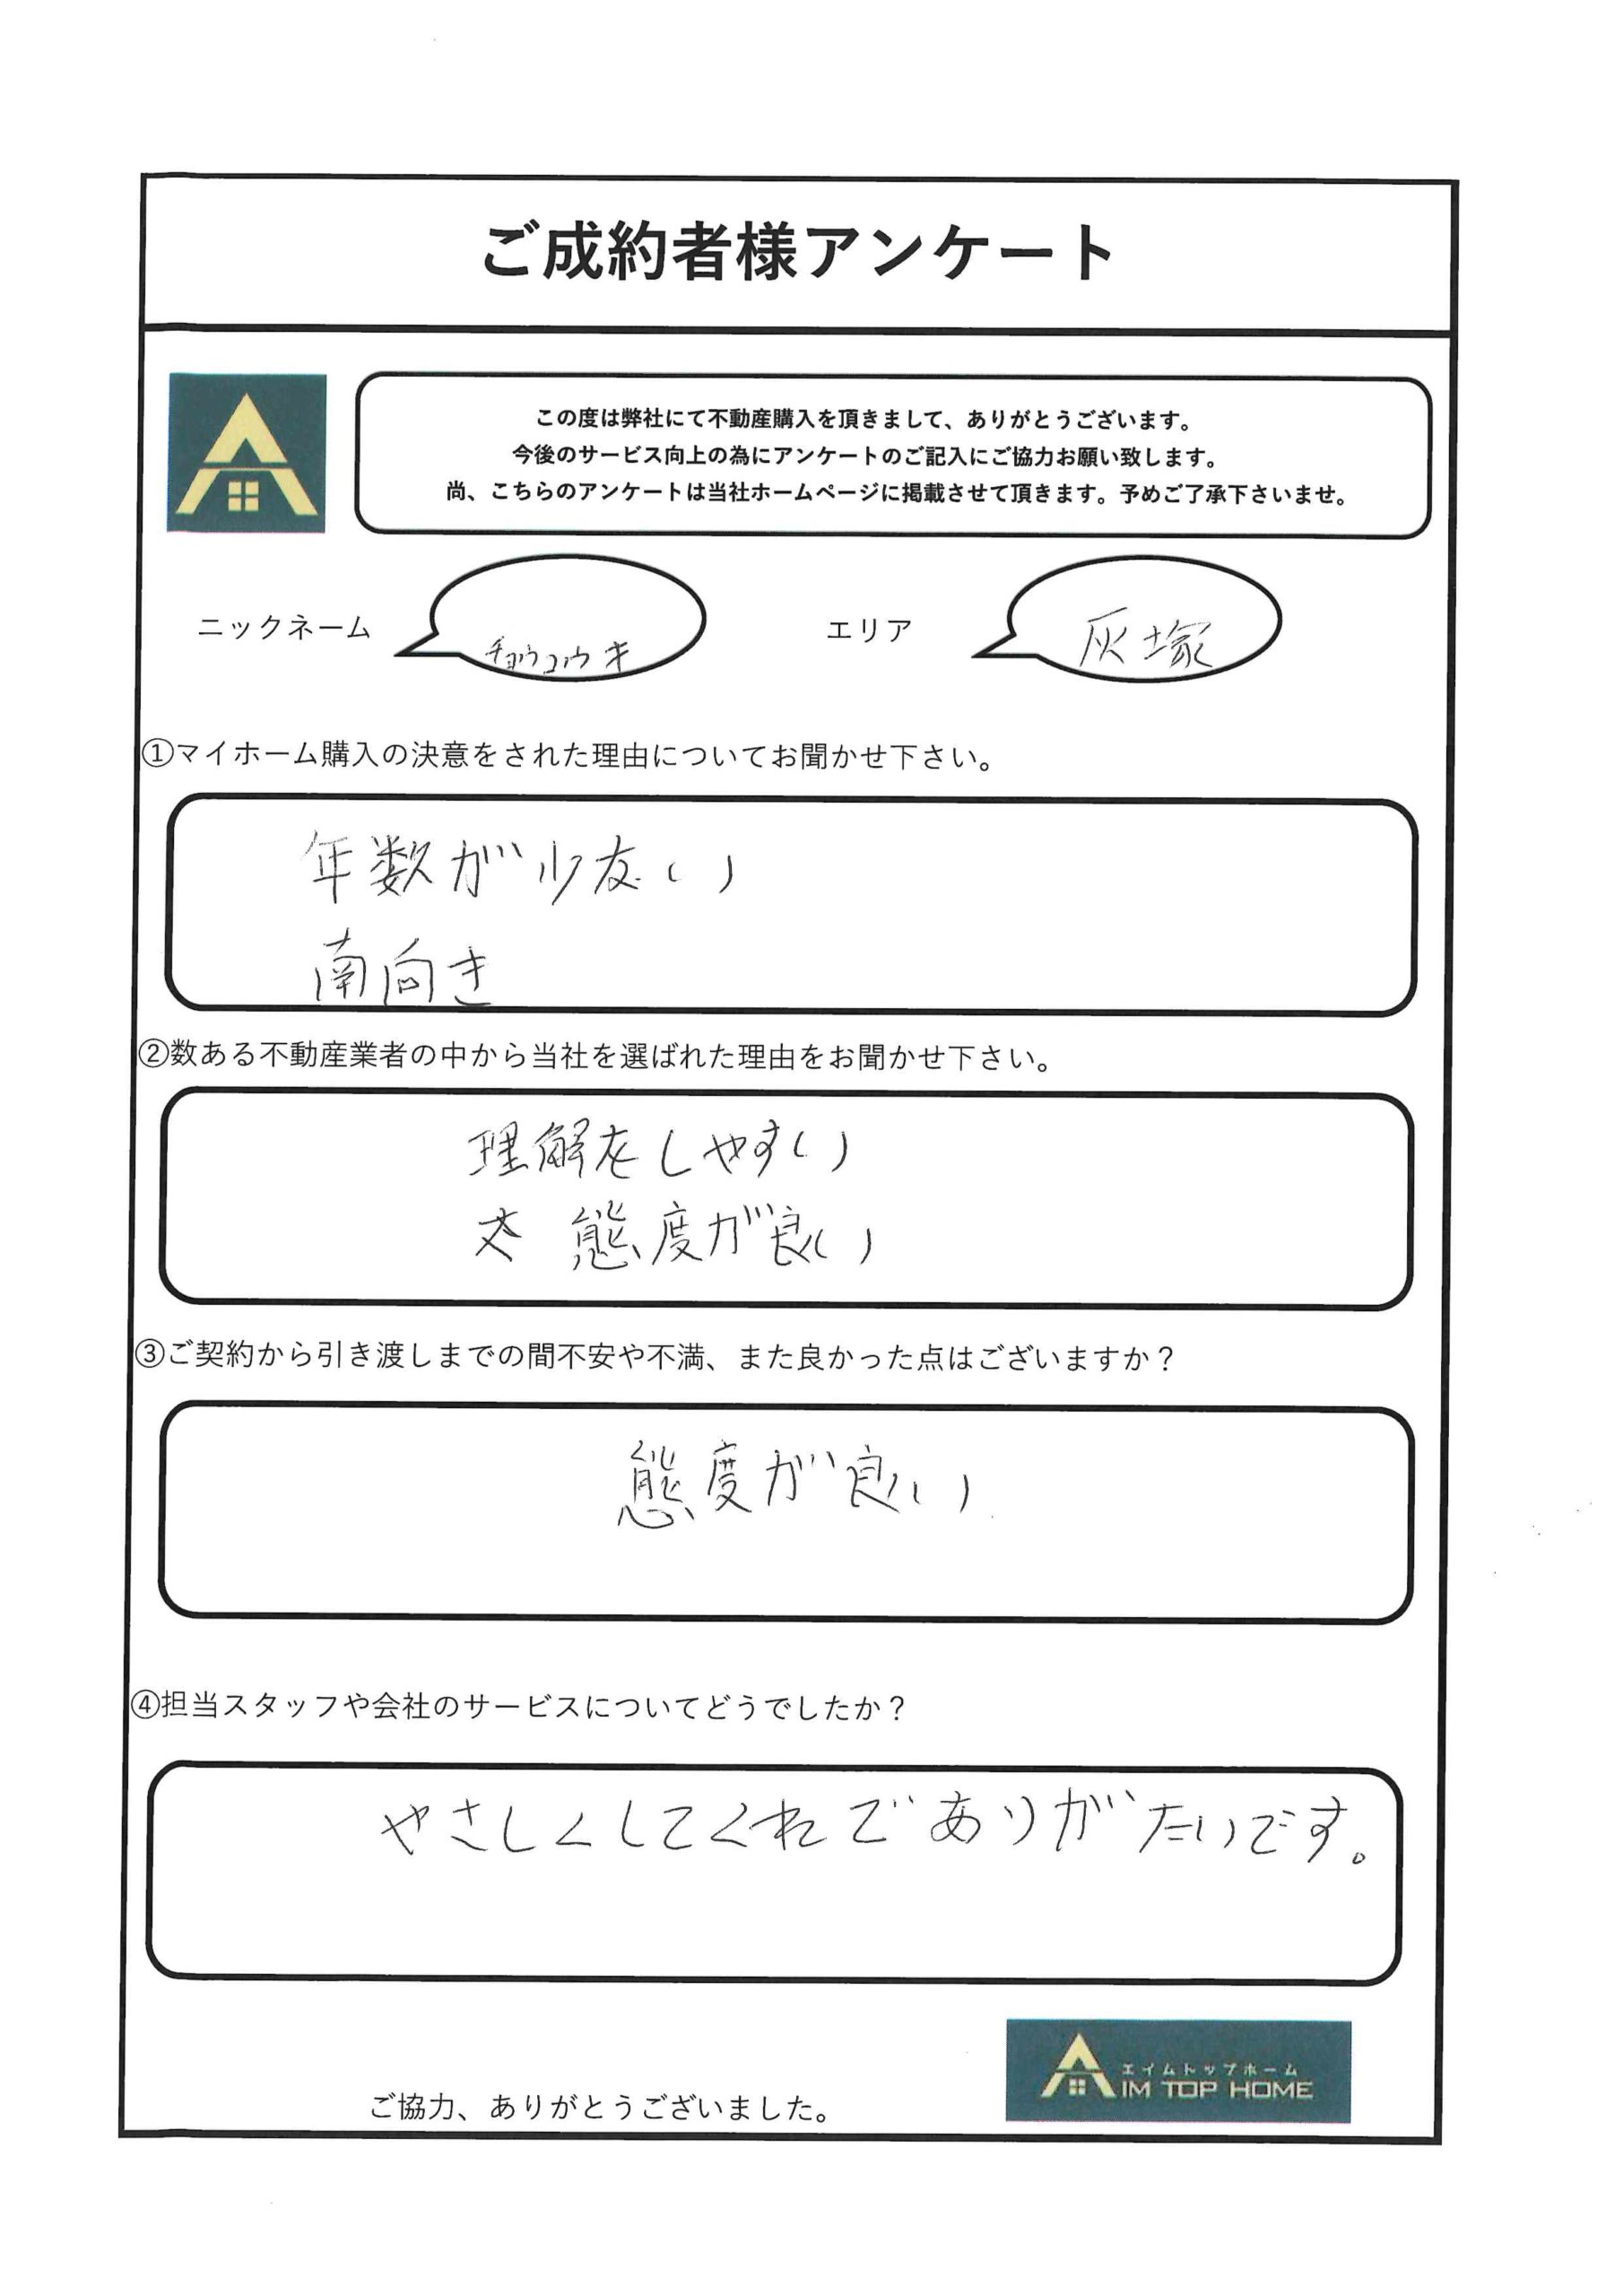 ご成約者様アンケート
この度は弊社にて不動産購入を頂きまして、ありがとうございます。
今後のサービス向上の為にアンケートのご記入にご協力お願い致します。
尚、こちらのアンケートは当社ホームページに掲載させて頂きます。予めご了承下さいませ。
ニックネーム チョウコウキ エリア 灰塚
①マイホーム購入の決意をされた理由についてお聞かせ下さい。
年数が少ない
南向き
②数ある不動産業者の中から当社を選ばれた理由をお聞かせ下さい。
理解をしやすい
態度が良い
③ご契約から引き渡しまでの間不安や不満、また良かった点はございますか？
態度が良い
④担当スタッフや会社のサービスについてどうでしたか？
やさしくしてくれでありがたいです。
エイムトップホーム
AIM TOP HOME
ご協力、ありがとうございました。